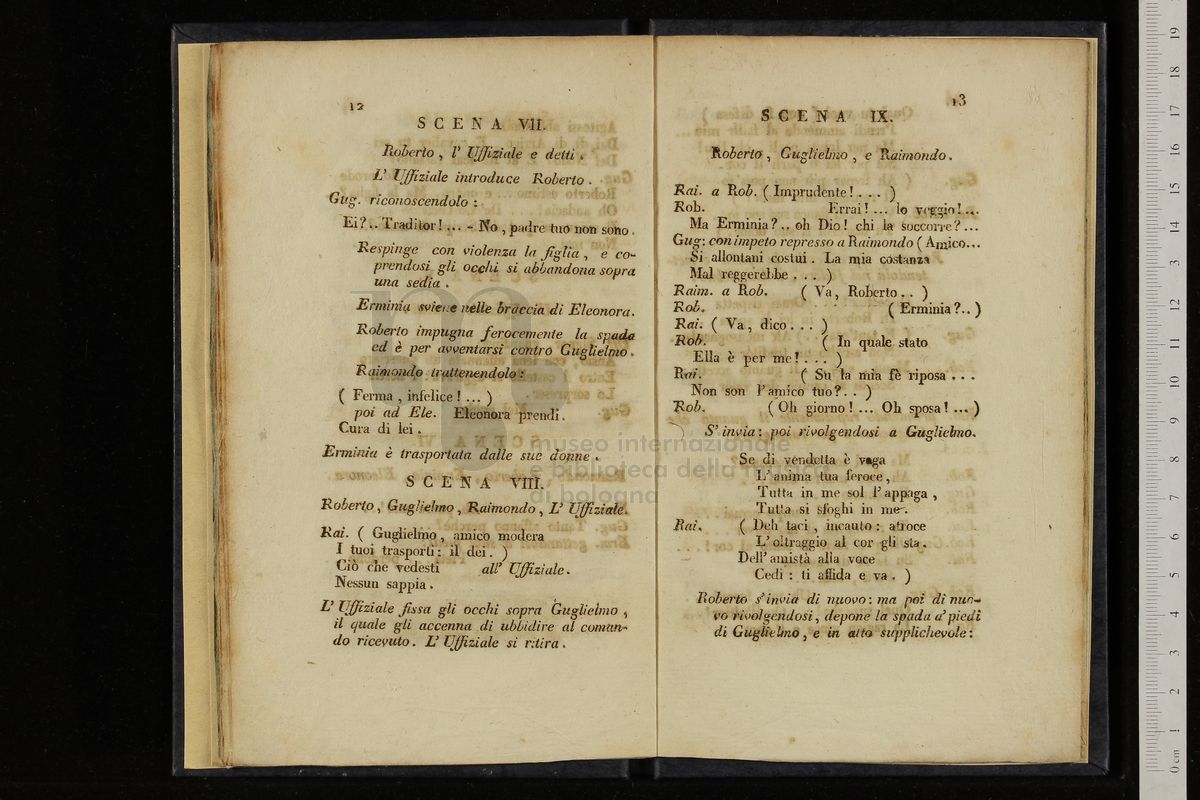 12
SCENA VII.
Roberto , l' Uffiziale e detti .
L' Uffiziale introduce Roberto .
Gug. riconoscendolo :
Ei? .. Traditor! ... - No , padre tuo non sono .
Respinge con violenza la figlia , e co-
prendosi gli occhi si abbandona sopra
una sedia .
Erminia sviene nelle braccia di Eleonora.
Roberto impugna ferocemente la spada
ed è per avventarsi contro Guglielmo.
Raimondo trattenendolo :
( Ferma , infelice ! ... )
poi ad Ele. Eleonora prendi.
Cura di lei .
Erminia è trasportata dalle sue donne .
SCENA VIII.
Roberto, Guglielmo, Raimondo, L' Uffiziale.
Rai. ( Guglielmo, amico modera
I tuoi trasporti: il dei. )
Ciò che vedesti all' Uffiziale.
Nessun sappia .
L' Uffiziale fissa gli occhi sopra Guglielmo ,
il quale gli accenna di ubbidire al coman-
do ricevuto. L' Uffiziale si ritira .
13
SCENA IX.
Roberto , Guglielmo , e Raimondo.
Rai. a Rob. ( Imprudente! . . . )
Rob. Errai! ... lo veggio! ...
Ma Erminia? .. oh Dio! chi la soccorre? ...
Gug: con impeto represso a Raimondo ( Amico...
Si allontani costui . La mia costanza
Mal reggerebbe . . . )
Raim. a Rob. ( Va, Roberto. . )
Rob. ( Erminia?.. )
Rai. ( Va, dico. . . )
Rob. ( In quale stato
Ella è per me! . . . )
Rai. ( Su la mia fè riposa . . .
Non son l' amico tuo? . . )
Rob. ( Oh giorno! ... Oh sposa! ... )
S' invia: poi rivolgendosi a Guglielmo.
Se di vendetta è vaga
L' anima tua feroce,
Tutta in me sol l' appaga ,
Tutta si sfoghi in me.
Rai. ( Deh taci , incauto : atroce
L' oltraggio al cor gli sta.
Dell' amistà alla voce
Cedi : ti affida e va . )
Roberto s' invia di nuovo: ma poi di nuo-
vo rivolgendosi, depone la spada a' piedi
di Guglielmo, e in atto supplichevole:
museo internazionale
e biblioteca della musica
di bologna
0 cm 1 2 3 4 5 6 7 8 9 10 11 12 13 14 15 16 17 18 19